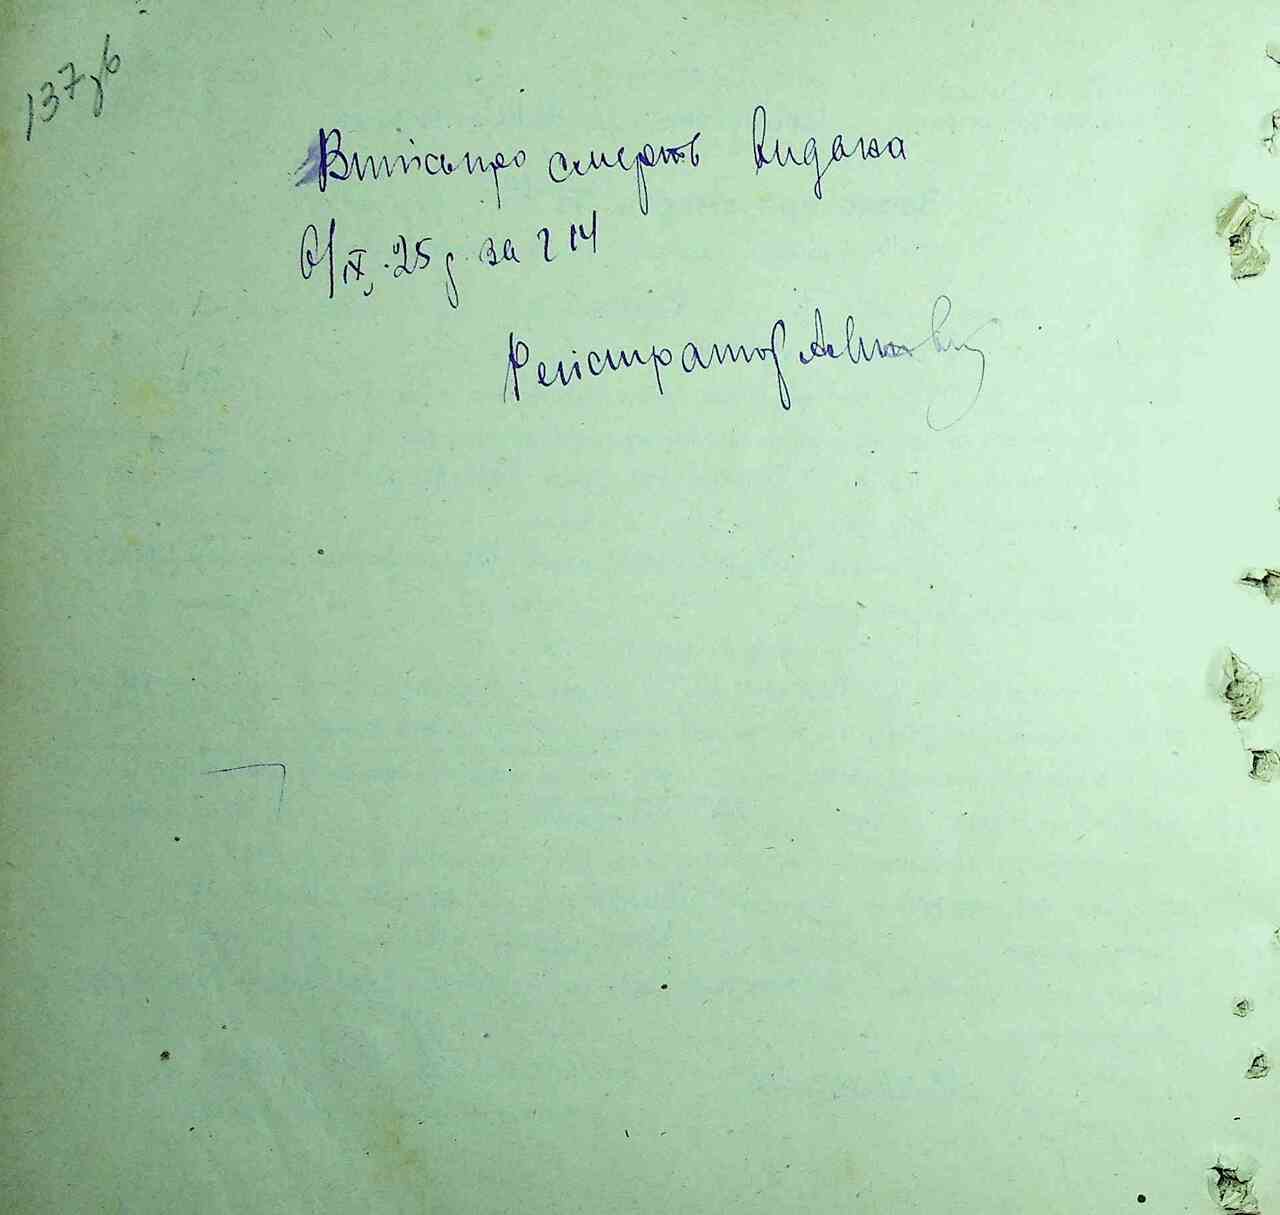 137зв
Витяг про смерть видана
6/IX 25 р. за № 14
Реєстратор